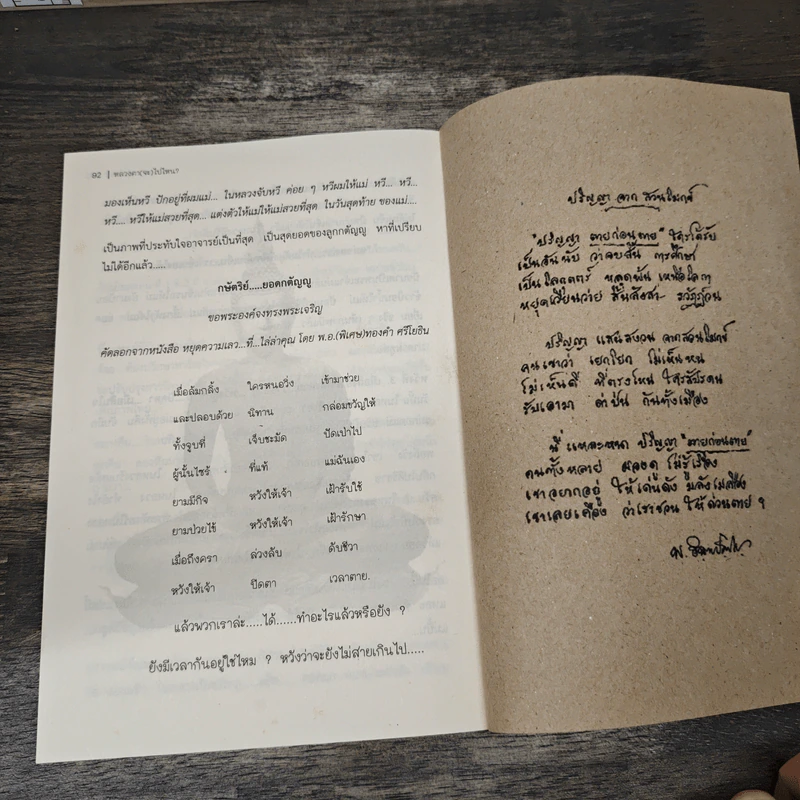 92 | หลวงตา(จะ)ไปไหน?
มองเห็นหวี ปักอยู่ที่ผมแม่... ในหลวงจับหวี ค่อย ๆ หวีผมให้แม่ หวี... หวี...
หวี.... หวีให้แม่สวยที่สุด... แต่งตัวให้แม่ให้แม่สวยที่สุด ในวันสุดท้าย ของแม่....
เป็นภาพที่ประทับใจอาจารย์เป็นที่สุด เป็นสุดยอดของลูกกตัญญู หาที่เปรียบ
ไม่ได้อีกแล้ว.....
กษัตริย์....ยอดกตัญญู
ขอพระองค์จงทรงพระเจริญ
คัดลอกจากหนังสือ หยุดความเลว...ที่...ไล่ล่าคุณ โดย พ.อ.(พิเศษ)ทองคำ ศรีโยธิน
เมื่อล้มกลิ้ง ใครหนอวิ่ง เข้ามาช่วย
และปลอบด้วย นิทาน กล่อมขวัญให้
ทั้งจูบที่ เจ็บชะมัด ปัดเป่าไป
ผู้นั้นไซร้ ที่แท้ แม่ฉันเอง
ยามมีกิจ หวังให้เจ้า เฝ้ารับใช้
ยามป่วยไข้ หวังให้เจ้า เฝ้ารักษา
เมื่อถึงครา ล่วงลับ ดับชีวา
หวังให้เจ้า ปิดตา เวลาตาย.
แล้วพวกเราล่ะ.....ได้......ทำอะไรแล้วหรือยัง ?
ยังมีเวลากันอยู่ใช่ไหม ? หวังว่าจะยังไม่สายเกินไป.....
ปริญญา จาก สวนโมกข์
"ปริญญา ตายก่อนตาย" ใครได้รับ
เป็นอันนับ ว่าจบสิ้น การศึกษา
เป็นโลกุตตร์ หลุดพ้น เหนือโลกา
หยุดเวียนว่าย สิ้นสังสา- รวัฏฏ์วน
ปริญญา แสนสงวน จากสวนโมกข์
คนเขาว่า เยกโยก ไม่เห็นหน
ไม่เห็นดี ที่ตรงไหน ใครสัปดน
รับเอามา ด่าป่น กันทั้งเมือง
นี่แหละหนา ปริญญา "ตายก่อนตาย"
คนทั้งหลาย มองดู ไม่รู้เรื่อง
เขาอยากอยู่ ให้เด่นดัง มลังเมลือง
เขาเลยเคือง ว่าเราชวน ให้ด่วนตาย ฯ